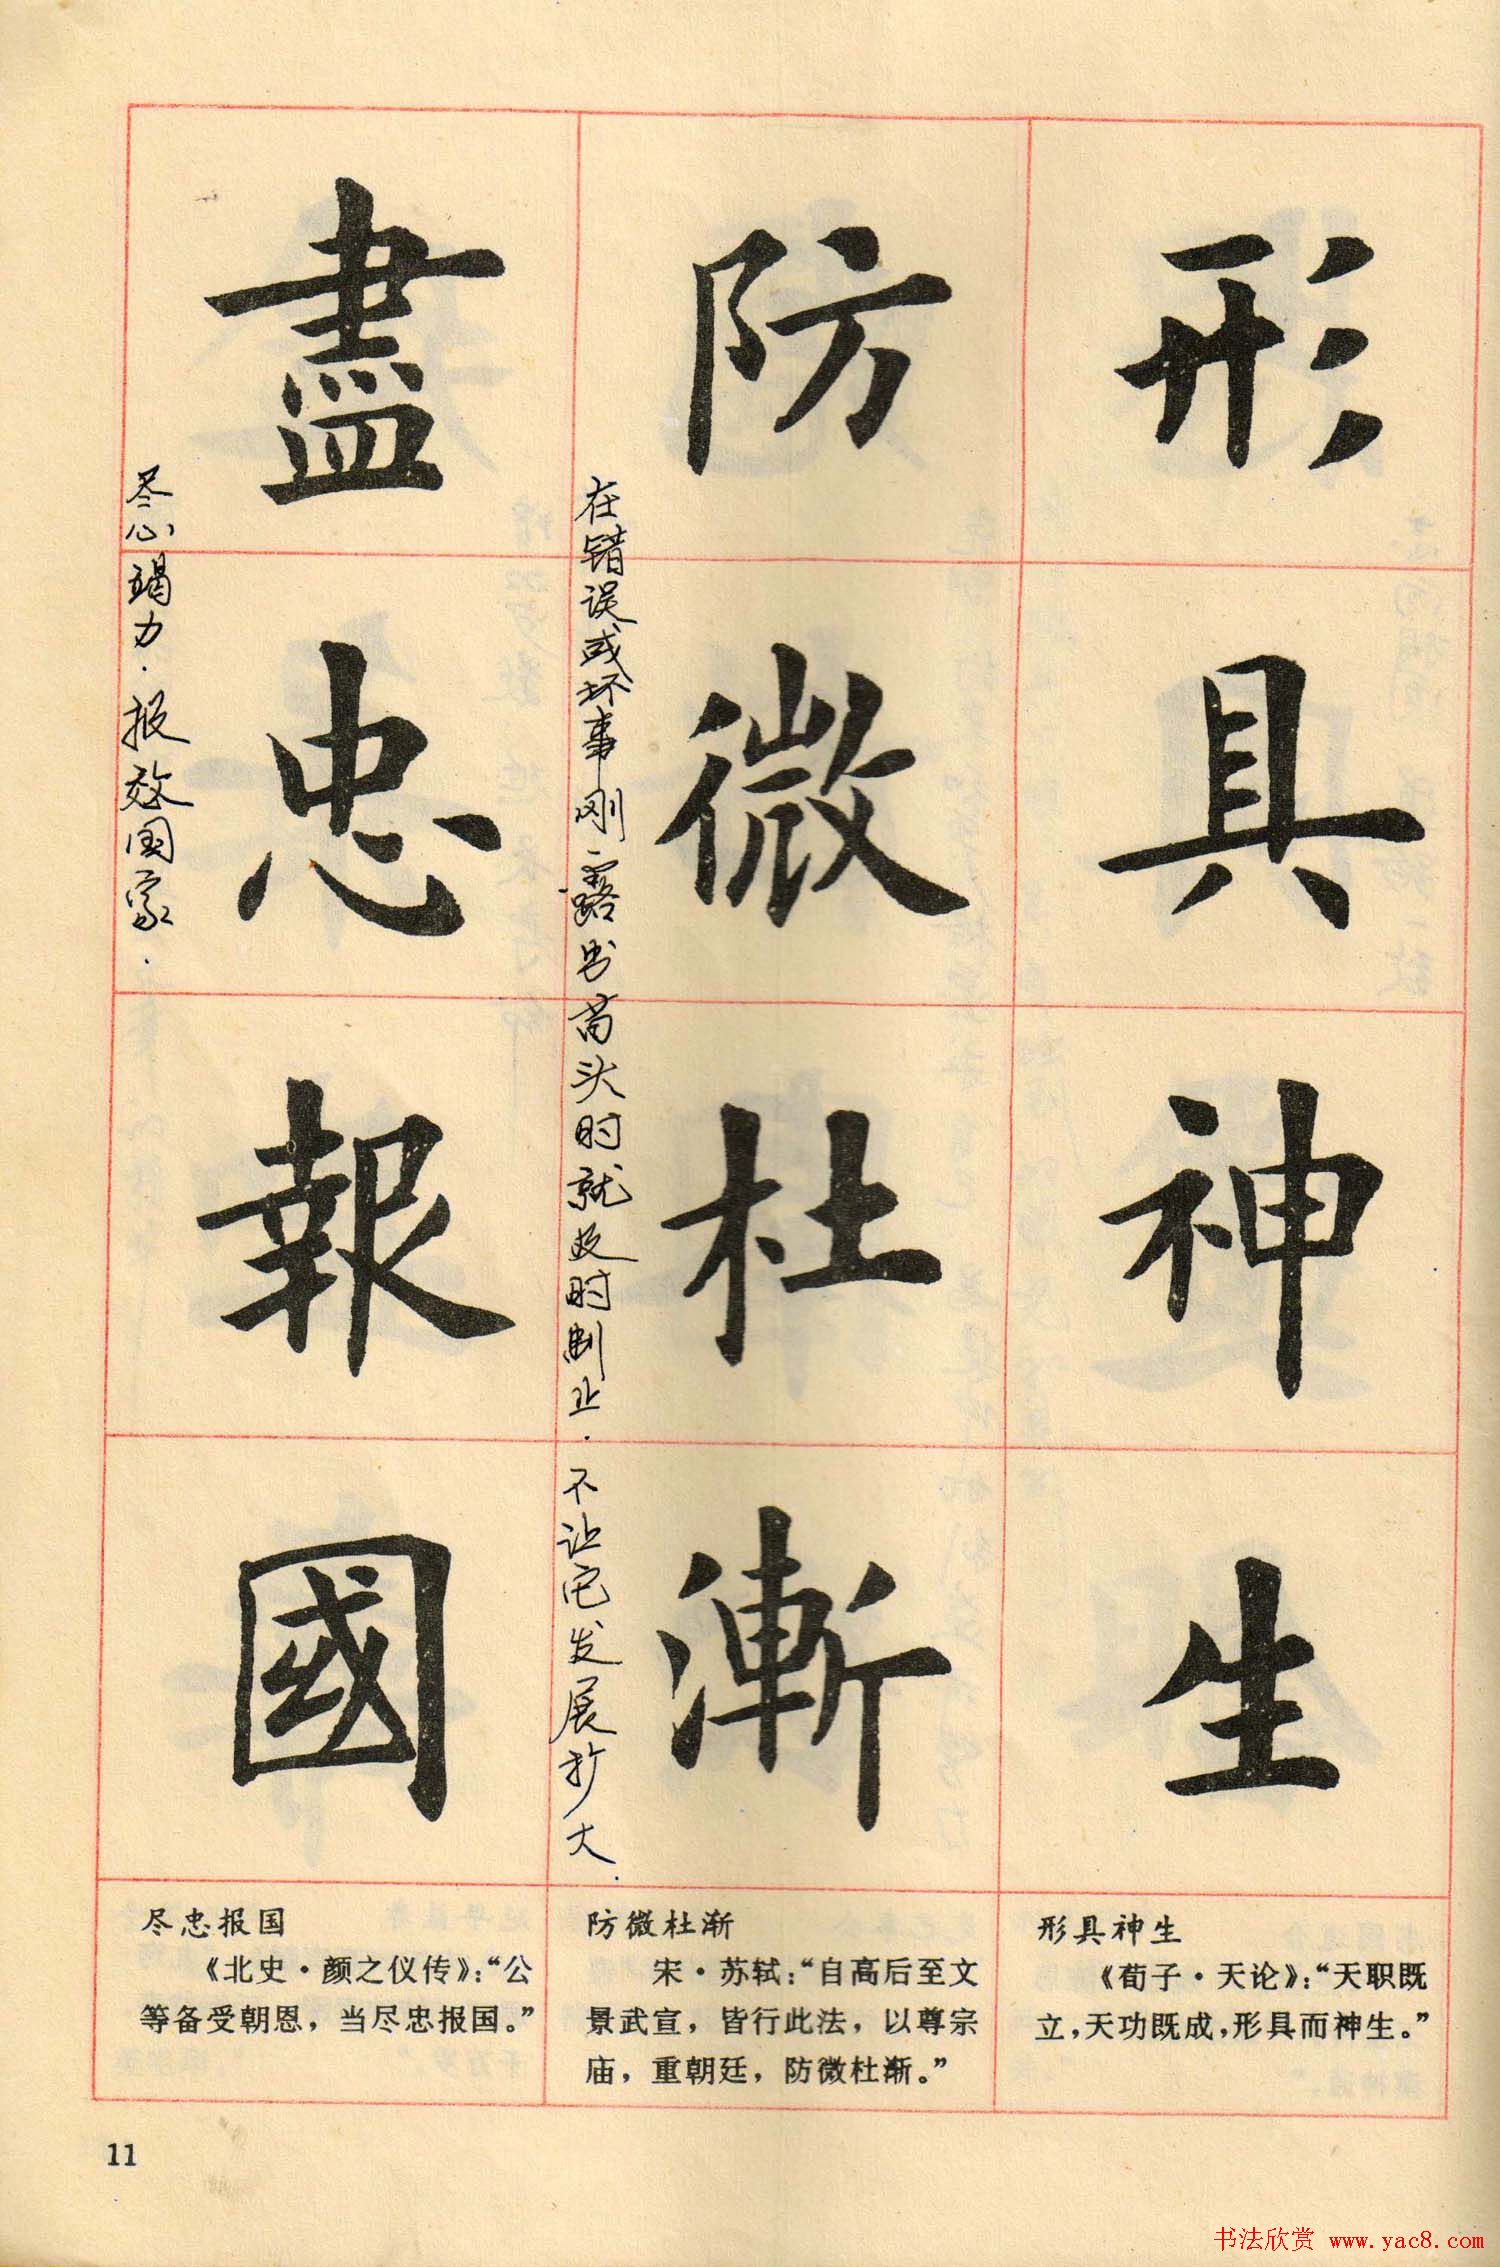 形具神生
防微杜渐
盡忠報國
在错误或坏事刚露出苗头时就及时制止.不让它发展扩大.
尽心竭力.报效国家.
尽忠报国
《北史·颜之仪传》：“公
等备受朝恩，当尽忠报国。”
防微杜渐
宋·苏轼：“自高后至文
景武宣，皆行此法，以尊宗
庙，重朝廷，防微杜渐。”
形具神生
《荀子·天论》：“天职既
立，天功既成，形具而神生。”
11
书法欣赏 www.yac8.com